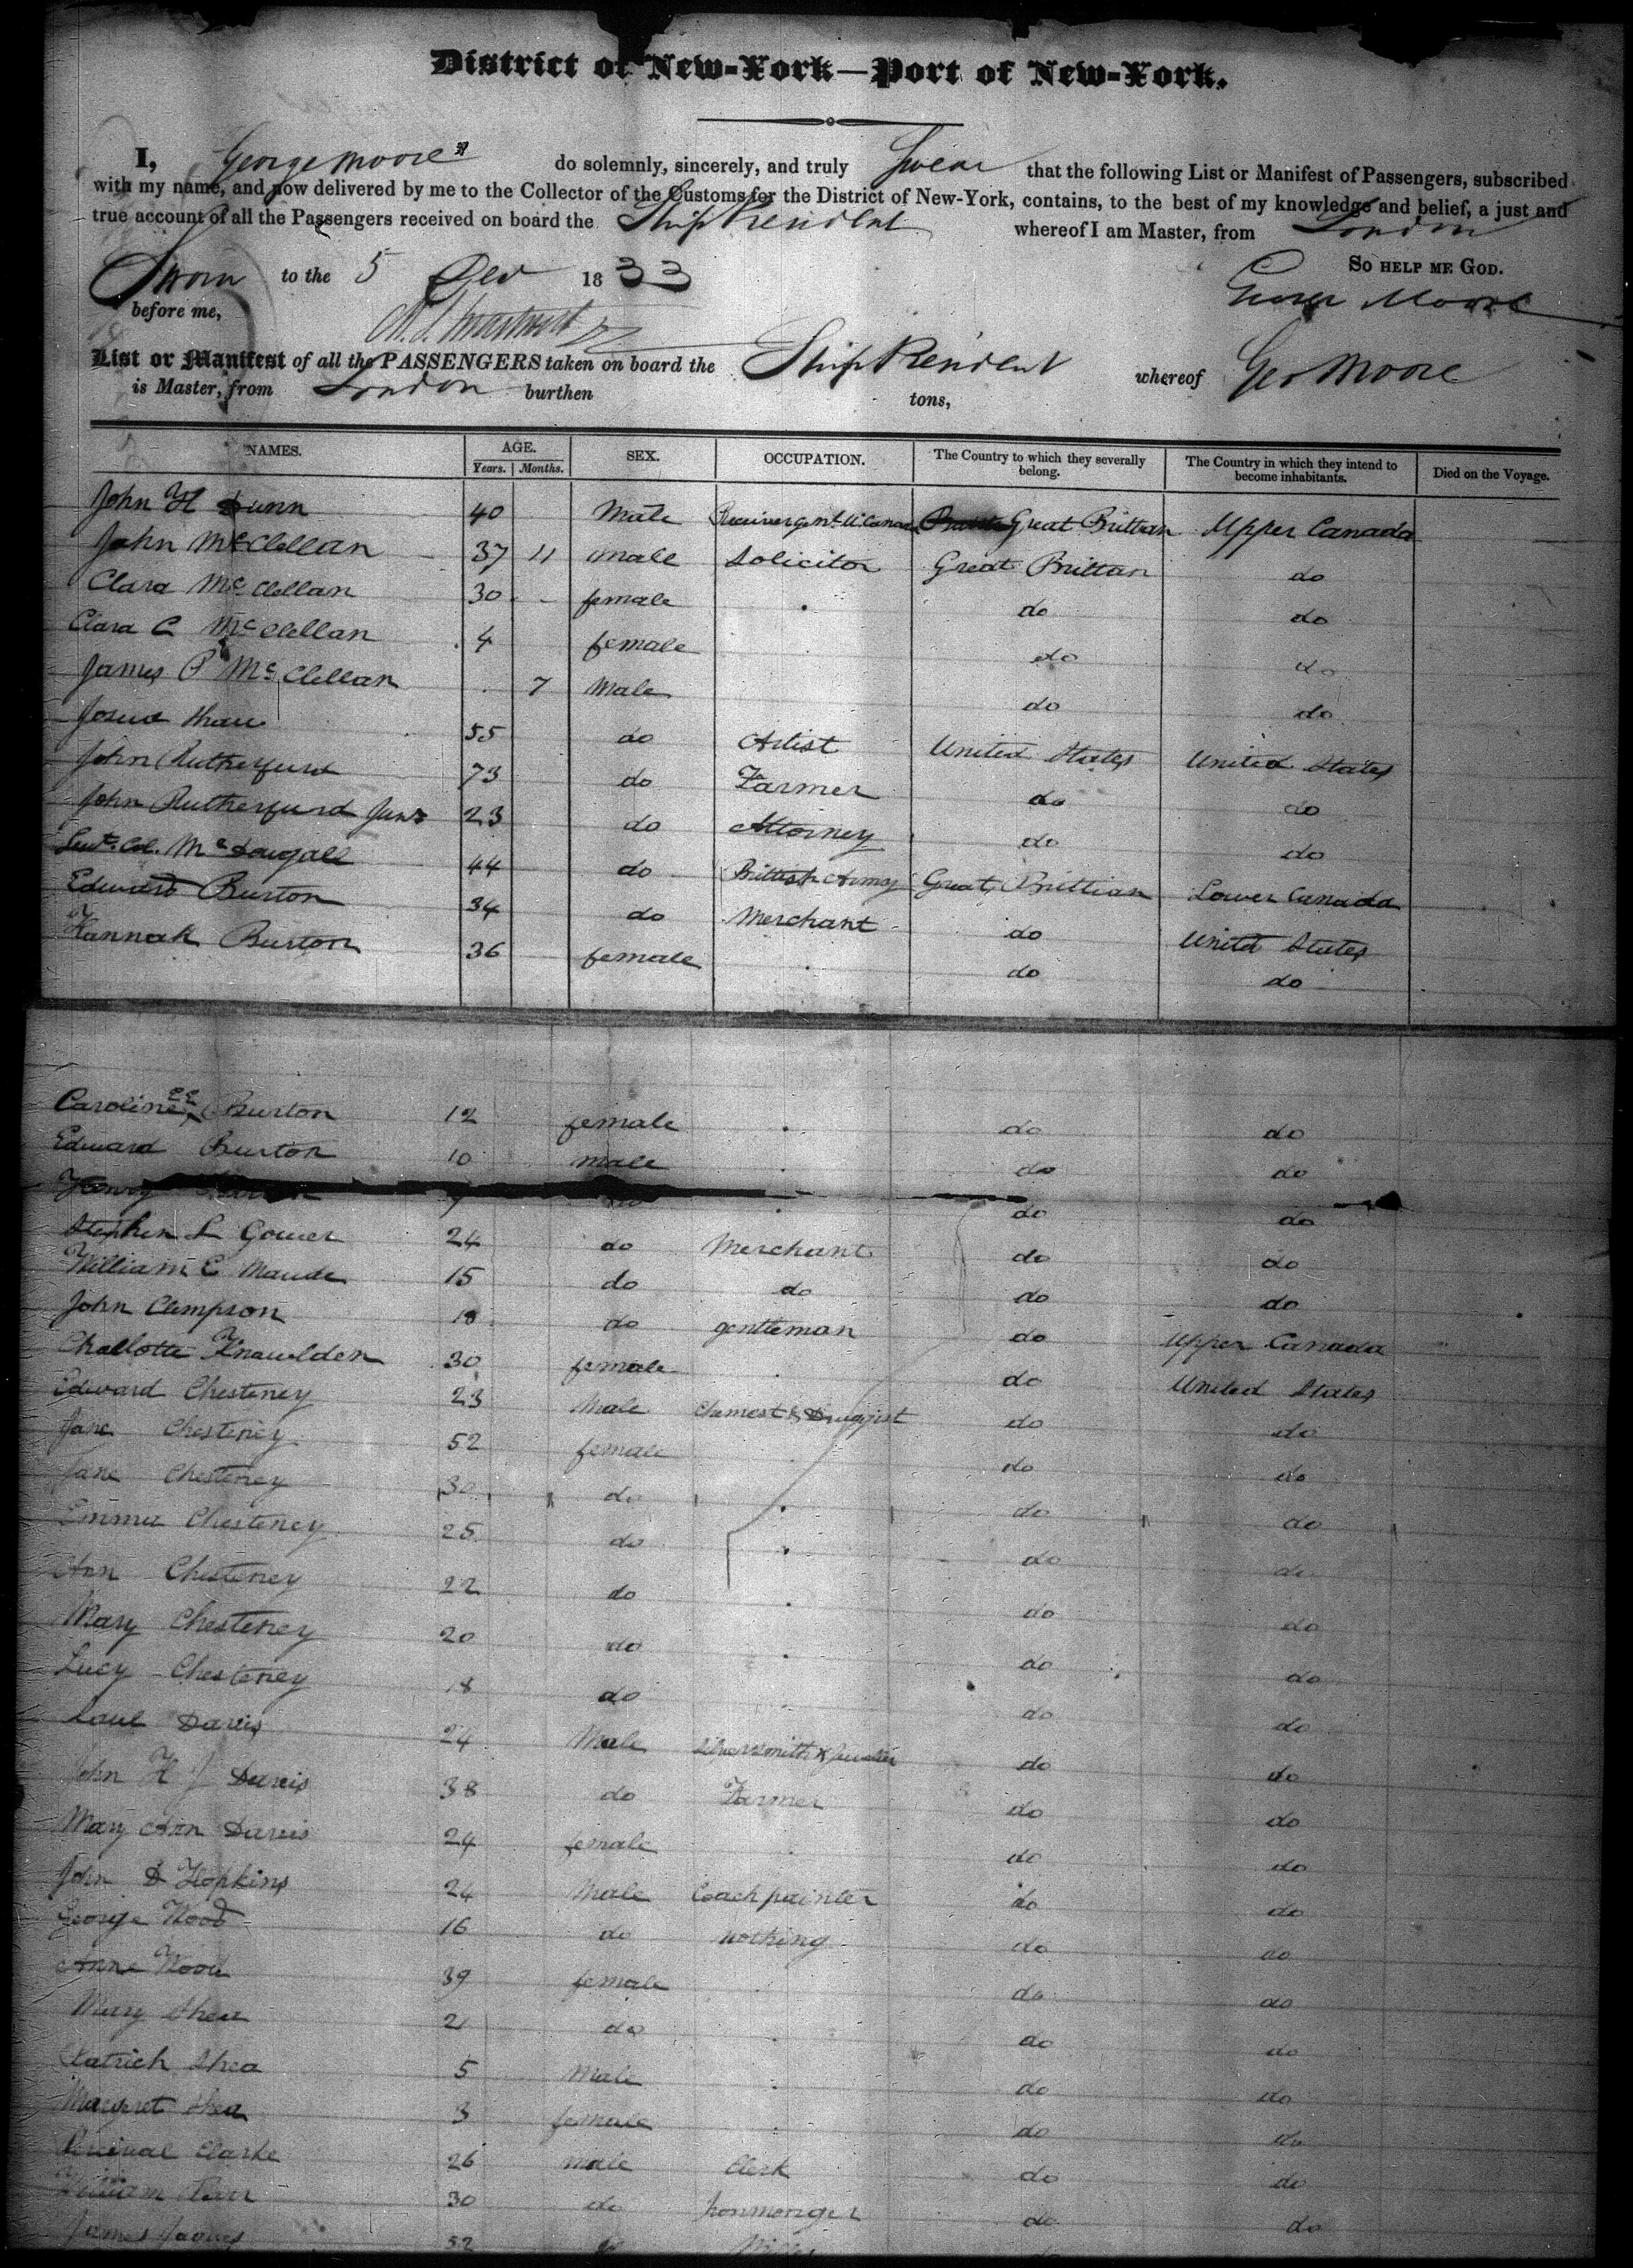 District of New-York—Port of New-York.
I, George Moore do solemnly, sincerely, and truly Swear that the following List or Manifest of Passengers, subscribed
with my name, and now delivered by me to the Collector of the Customs for the District of New-York, contains, to the best of my knowledge and belief, a just and
true account of all the Passengers received on board the Ship President whereof I am Master, from London
So help me God.
Sworn to the 5 Dec 1833 George Moore
before me,
List or Manifest of all the PASSENGERS taken on board the Ship President whereof Geo Moore
is Master, from London burthen tons,
NAMES. AGE. SEX. OCCUPATION. The Country to which they severally belong. The Country in which they intend to become inhabitants. Died on the Voyage.
Years. Months.
John H Dunn 40 Male Great Brittan Upper Canada
John McClellan 37 11 male Solicitor Great Brittan do
Clara McClellan 30 female do do
Clara C McClellan 4 female do do
James P McClellan 7 Male do do
55 do Artist United States United States
John Rutherfurd 73 do Farmer do do
John Rutherfurd Junr 23 do Attorney do do
Lieut. Col. McDougall 44 do Brittish Army Great Brittian Lower Canada
Edward Burton 34 do Merchant do United States
Hannah Burton 36 female do do
Caroline EE Burton 12 female do do
Edward Burton 10 male do do
Henry do do
Stephen L Gower 24 do Merchant do do
William E Maude 15 do do do do
John Clempson 18 do gentleman do Upper Canada
Challotte Knauelden 30 female do United States
Edward Chesteney 23 Male Chemest & Druggist do do
Jane Chesteney 52 female do do
Jane Chesteney 30 do do do
Emma Chesteney 25 do do do
Ann Chesteney 22 do do do
Mary Chesteney 20 do do do
Lucy Chesteney 18 do do do
Davis 24 Male Silversmith & Jeweler do do
John H J Davis 38 do Farmer do do
Mary Ann Davis 24 female do do
John D Hopkins 24 Male Coach painter do do
George Wood 16 do nothing do do
Anne Wood 39 female do do
Mary Shea 21 do do do
Patrick Shea 5 Male do do
Margret Shea 3 female do do
Percival Clarke 26 male Clerk do do
William 30 do Ironmonger do do
James 52